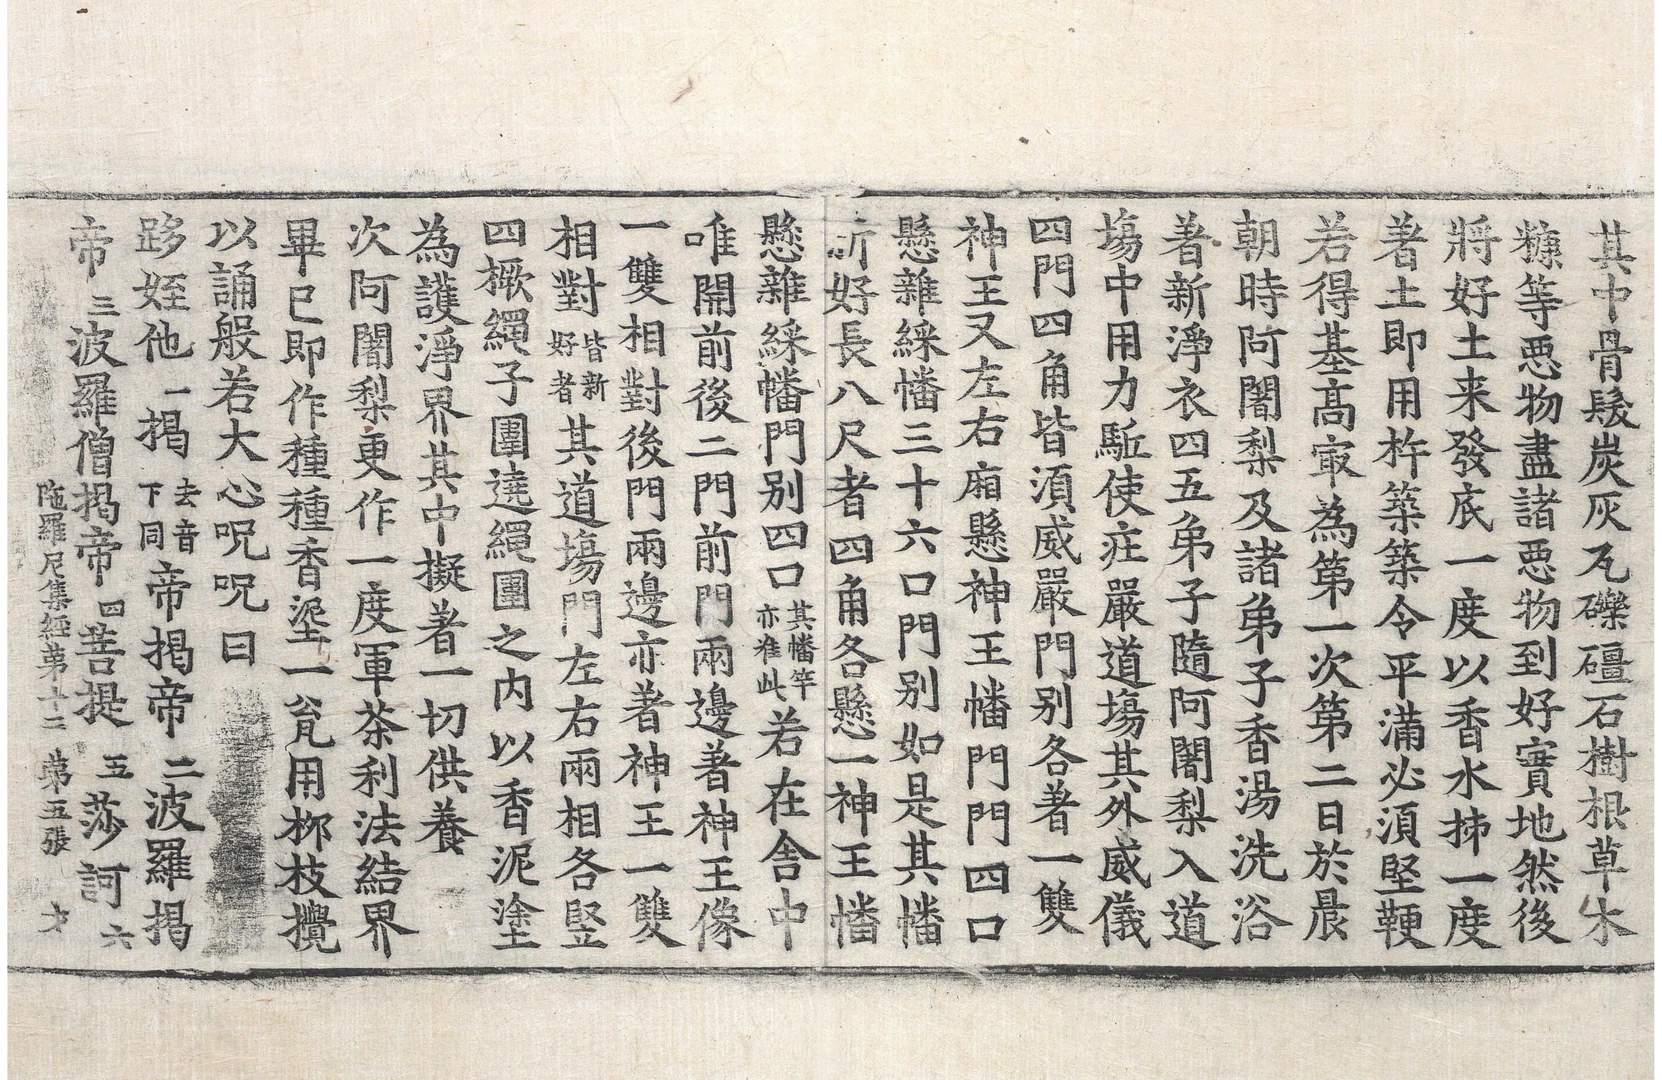 其中骨髮炭灰瓦礫礓石樹根草木
糠等惡物盡諸惡物到好實地然後
將好土来發底一度以香水㧊一度
著土即用杵築築令平滿必湏堅鞕
若得基高㝡為第一次第二日於晨
朝時阿闍梨及諸弟子香湯洗浴
著新淨衣四五弟子隨阿闍梨入道
塲中用力駈使庄嚴道塲其外威儀
四門四角皆湏威嚴門別各著一雙
神王又左右廂懸神王幡門門四口
懸雜綵幡三十六口門別如是其幡
新好長八尺者四角各懸一神王幡
懸雜綵幡門別四口其幡竿亦准此若在舍中
唯開前後二門前門兩邊著神王像
一雙相對後門兩邊亦著神王一雙
相對皆新好者其道塲門左右兩相各竪
四橛繩子圍遶繩圍之內以香泥塗
為護淨界其中擬著一切供養
次阿闍梨更作一度軍荼利法結界
畢已即作種種香埿一瓮用桞枝攪
以誦般若大心呪呪曰
跢姪他一揭去音下同帝揭帝二波羅揭
帝三波羅僧揭帝四菩提五莎訶六
陁羅尼集經第十二 第五張 才